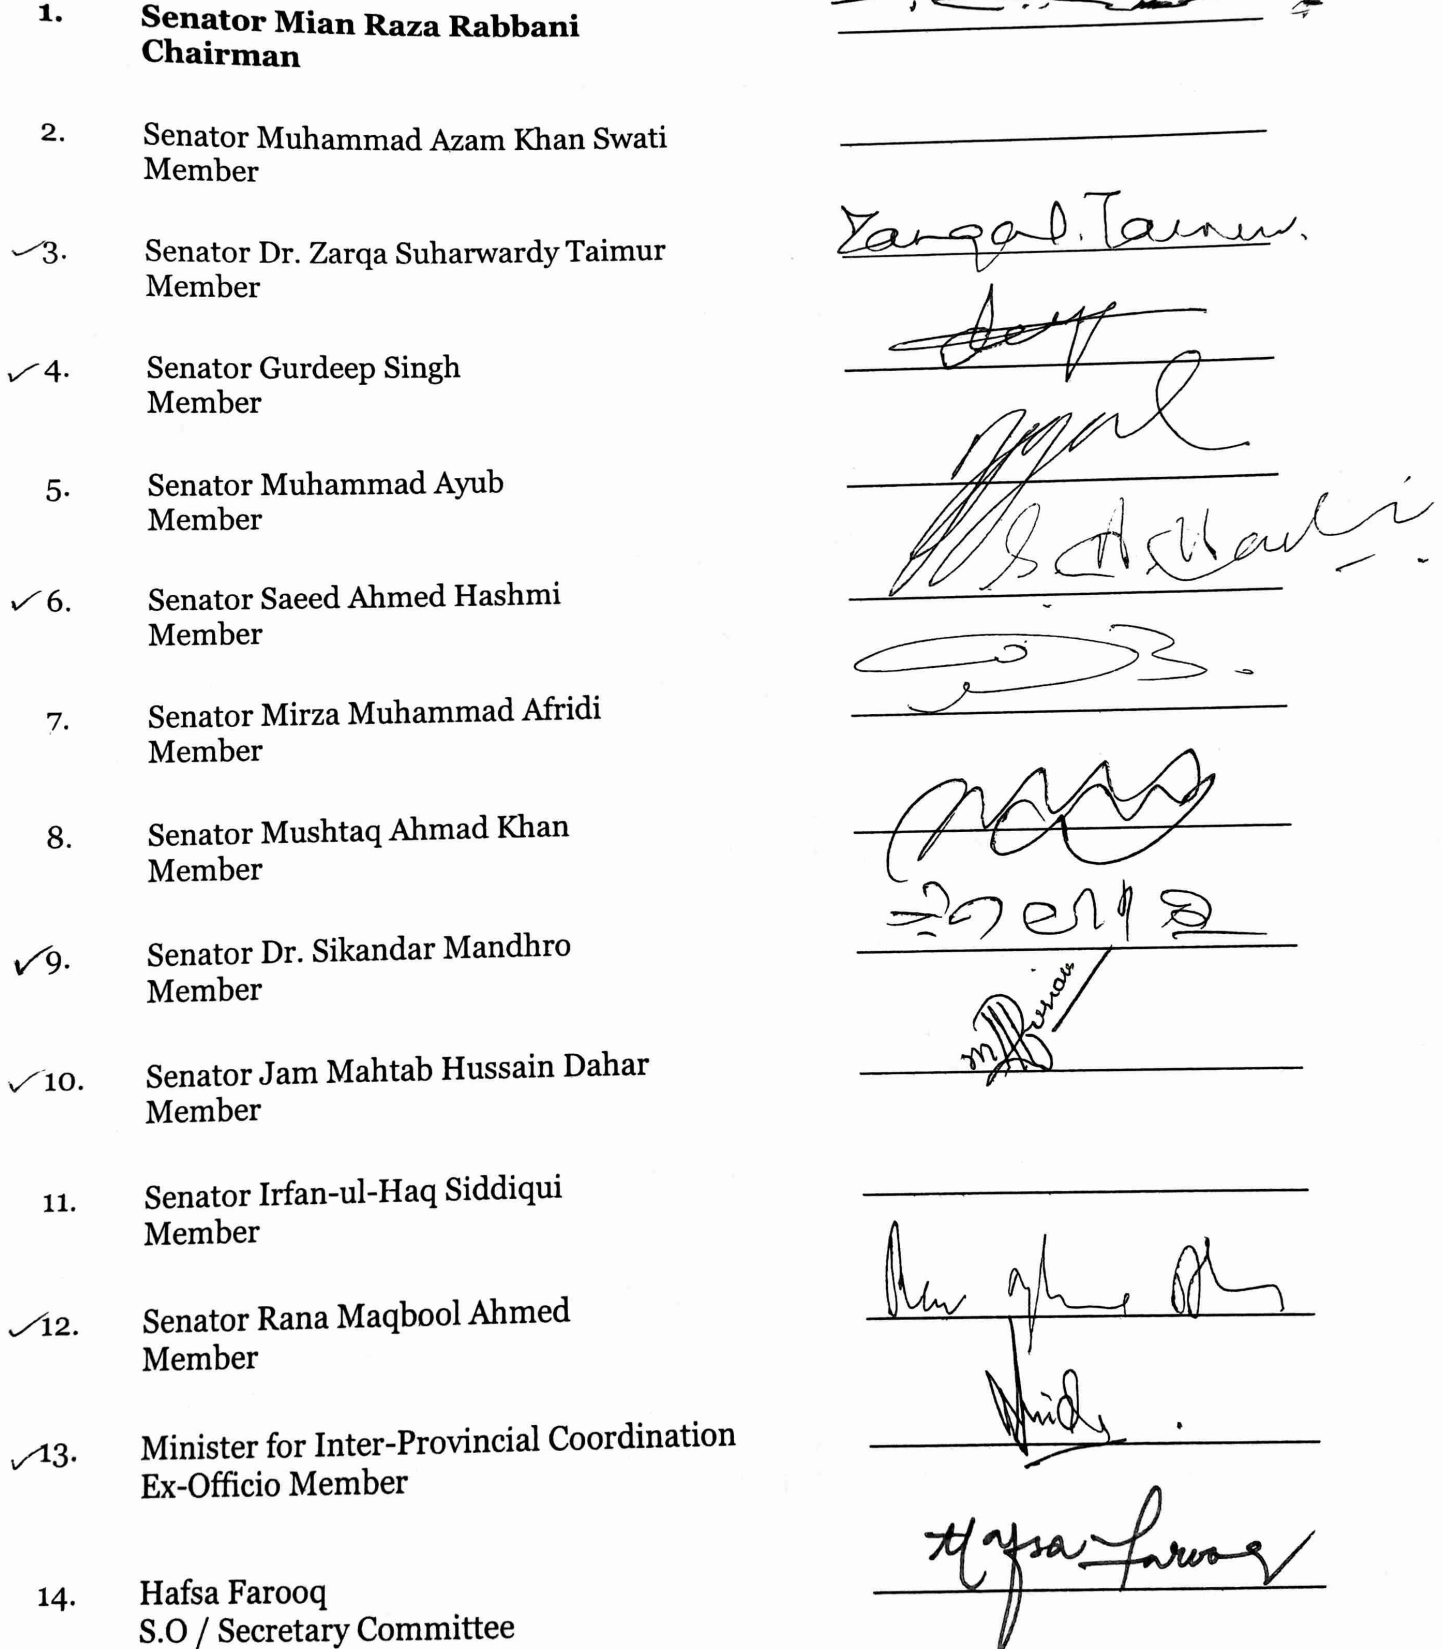 1. Senator Mian Raza Rabbani
Chairman
2. Senator Muhammad Azam Khan Swati
Member
3. Senator Dr. Zarqa Suharwardy Taimur
Member
Zarqa S. Taimur.
4. Senator Gurdeep Singh
Member
5. Senator Muhammad Ayub
Member
6. Senator Saeed Ahmed Hashmi
Member
7. Senator Mirza Muhammad Afridi
Member
8. Senator Mushtaq Ahmad Khan
Member
9. Senator Dr. Sikandar Mandhro
Member
10. Senator Jam Mahtab Hussain Dahar
Member
11. Senator Irfan-ul-Haq Siddiqui
Member
12. Senator Rana Maqbool Ahmed
Member
13. Minister for Inter-Provincial Coordination
Ex-Officio Member
Hafsa Farooq
14. Hafsa Farooq
S.O / Secretary Committee